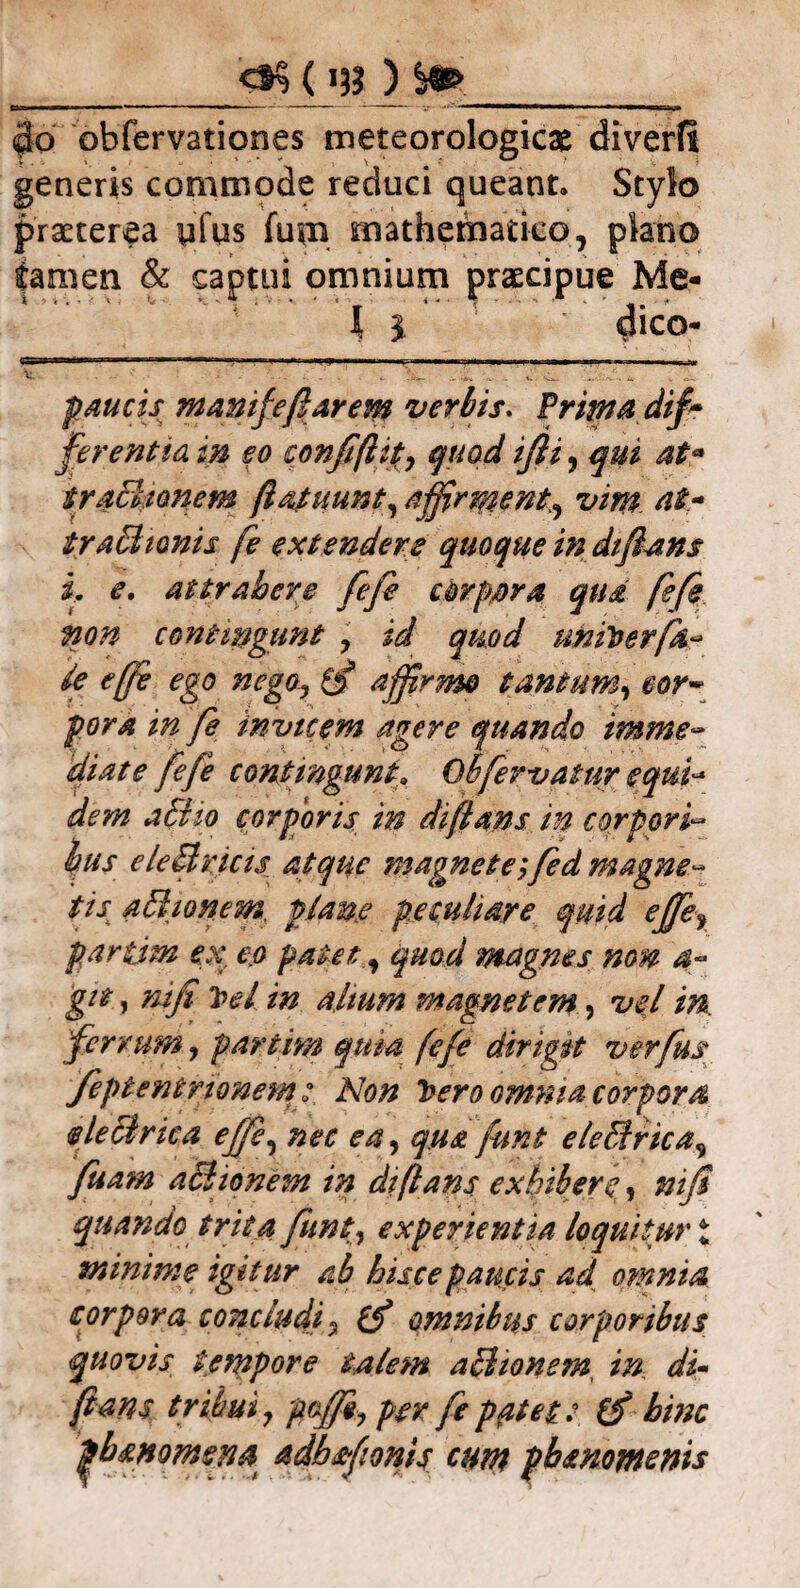 ( 133 )
do obſervationes meteorologicæ diverſi
generis commode reduci queant. Stylo
præterea uſus ſum mathematico, plano
tamen & captui omnium præcipue Me-
I 3 dico-
paucis manifeſtarem verbis. Prima dif-
ferentia in eo conſiſtit, quod iſti, qui at-
tractionem ſtatuunt, affirment, vim at-
tractionis ſe extendere quoque in diſtans
i. e. attrahere ſeſe corpora quæ ſeſe
non contingunt, id quod univerſa-
le eſſe ego nego, & affirmo tantum, cor-
pora in ſe invicem agere quando imme-
diate ſeſe contingunt. Obſervatur equi-
dem actio corporis in diſtans in corpori-
bus electricis atque magnete; ſed magne-
tis actionem plane peculiare quid eſſe,
partim ex eo patet, quod magnes non a-
git, niſi vel in alium magnetem, vel in
ferrum, partim quia ſeſe dirigit verſus
ſeptentrionem: Non vero omnia corpora
electrica eſſe, nec ea, quæ ſunt electrica,
ſuam actionem in diſtans exhibere, niſi
quando trita ſunt, experientia loquitur:
minime igitur ab hiſce paucis ad omnia
corpora concludi, & omnibus corporibus
quovis tempore talem actionem in di-
ſtans tribui, poſſe, per ſe patet: & hinc
phænomena adhæſionis cum phænomenis